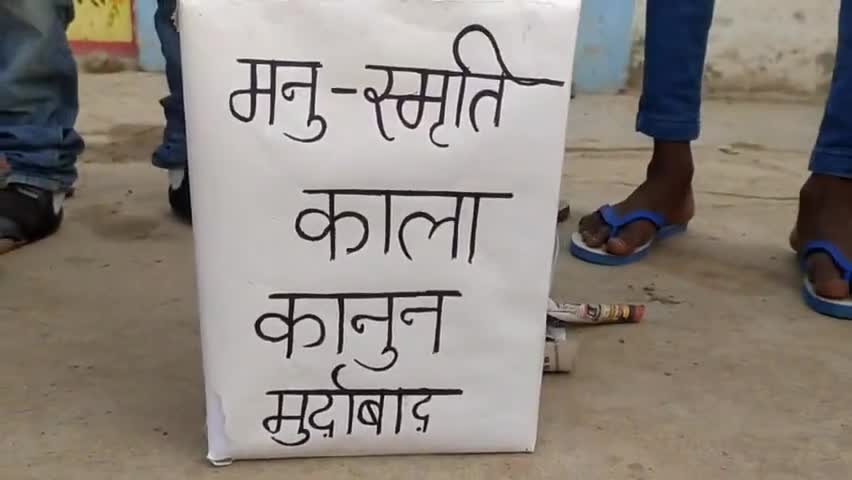 मनु-स्मृति
काला
कानुन
मुर्दाबाद